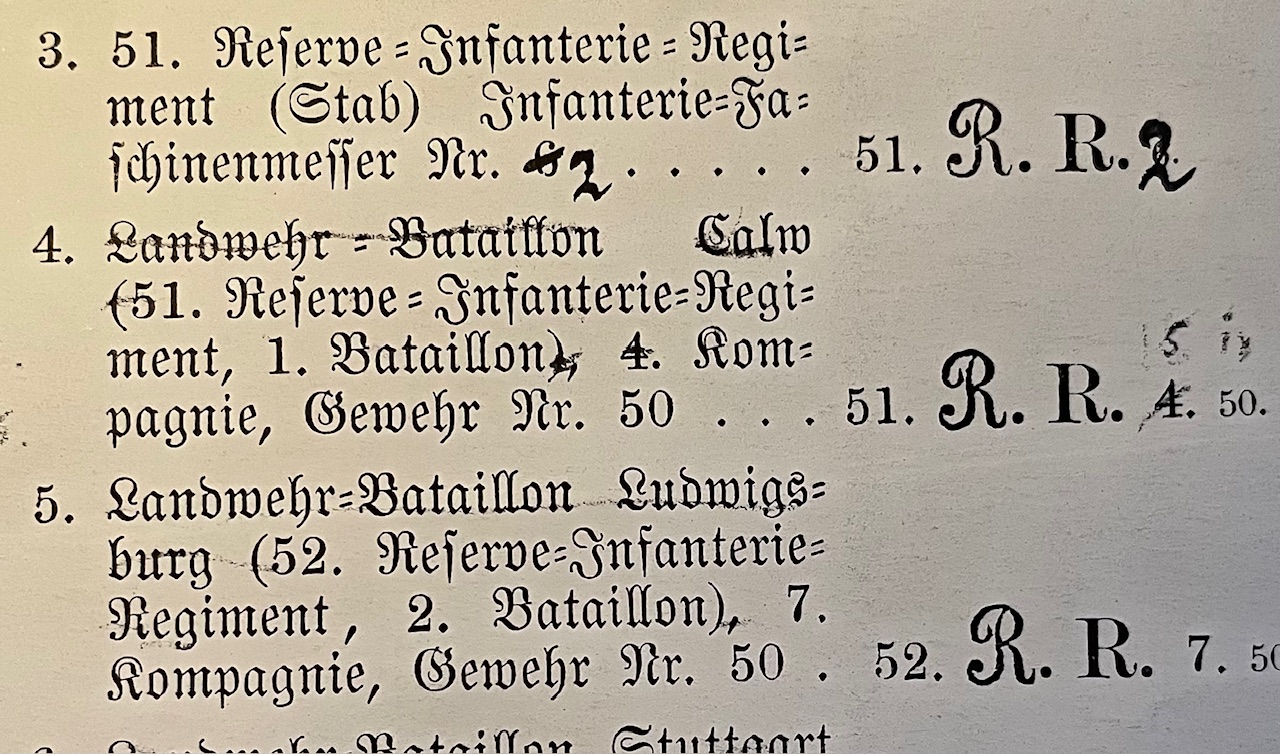 3. 51. Reſerve=Infanterie=Regi=
ment (Stab) Infanterie=Fa=
ſchinenmeſſer Nr. 2 . . . . . 51. R. R. 2
4. Landwehr=Bataillon Calw
(51. Reſerve=Infanterie=Regi=
ment, 1. Bataillon), 4. Kom=
pagnie, Gewehr Nr. 50 . . . 51. R. R. 4. 50.
5. Landwehr=Bataillon Ludwigs=
burg (52. Reſerve=Infanterie=
Regiment, 2. Bataillon), 7.
Kompagnie, Gewehr Nr. 50 . 52. R. R. 7. 50
Landwehr=Bataillon Stuttgart